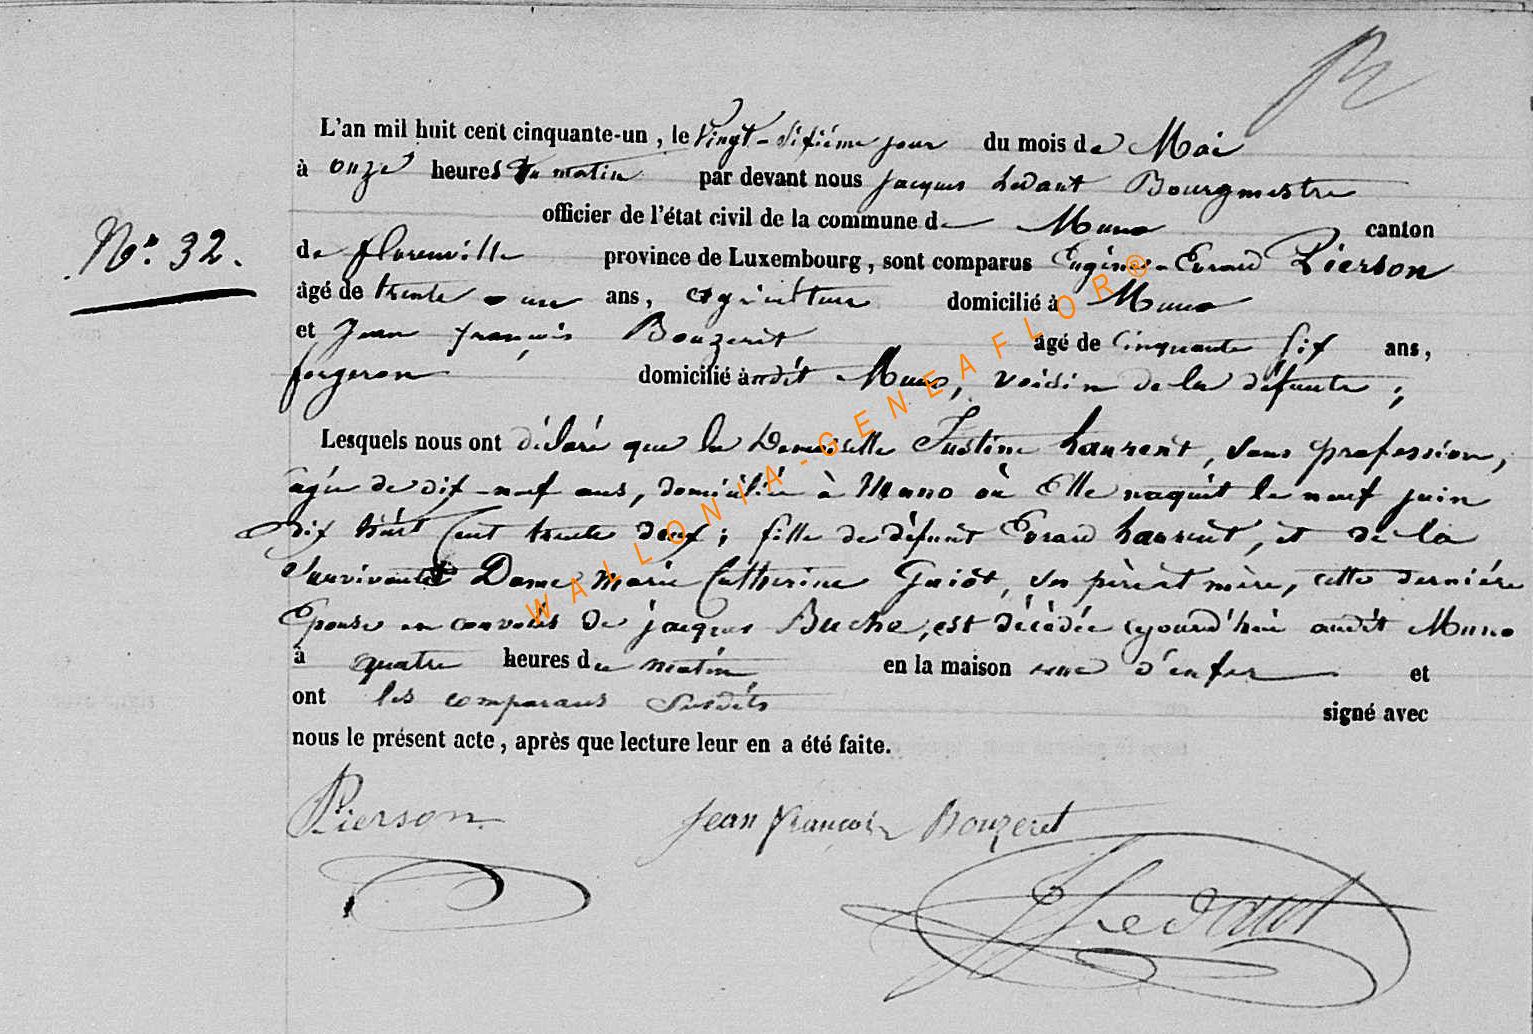 L'an mil huit cent cinquante-un, le vingt-sixième jour du mois de Mai
à onze heures du matin par devant nous jacques Ledant Bourgmestre
officier de l'état civil de la commune de Muno canton
N° 32.
de florenville province de Luxembourg, sont comparus Eugène-Evrard Pierson
âgé de trente-un ans, agriculteur domicilié à Muno
et Jean françois Bouzeret âgé de Cinquante six ans,
forgeron domicilié audit Muno, voisin de la défunte;
Lesquels nous ont déclaré que la Demoiselle Justine Laurent, sans profession,
agée de dix-neuf ans, domiciliée à Muno où Elle naquit le neuf juin
dix huit Cent trente deux; fille de défunt Evrard Laurent, et de la
Survivante Dame Marie Catherine Guiot, ses père et mère, cette dernière
Epouse en convoles de jacques Buche, est décédée cejourd'hui audit Muno
à quatre heures du matin en la maison rue d'enfer et
ont les comparans Susdits signé avec
nous le présent acte, après que lecture leur en a été faite.
Pierson Jean François Bouzeret
J Ledant
WALLONIA-GENEAFLOR®